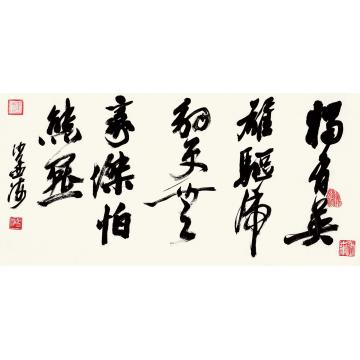 独有英
雄驅虎
豹更無
豪傑怕
熊羆
沙孟海